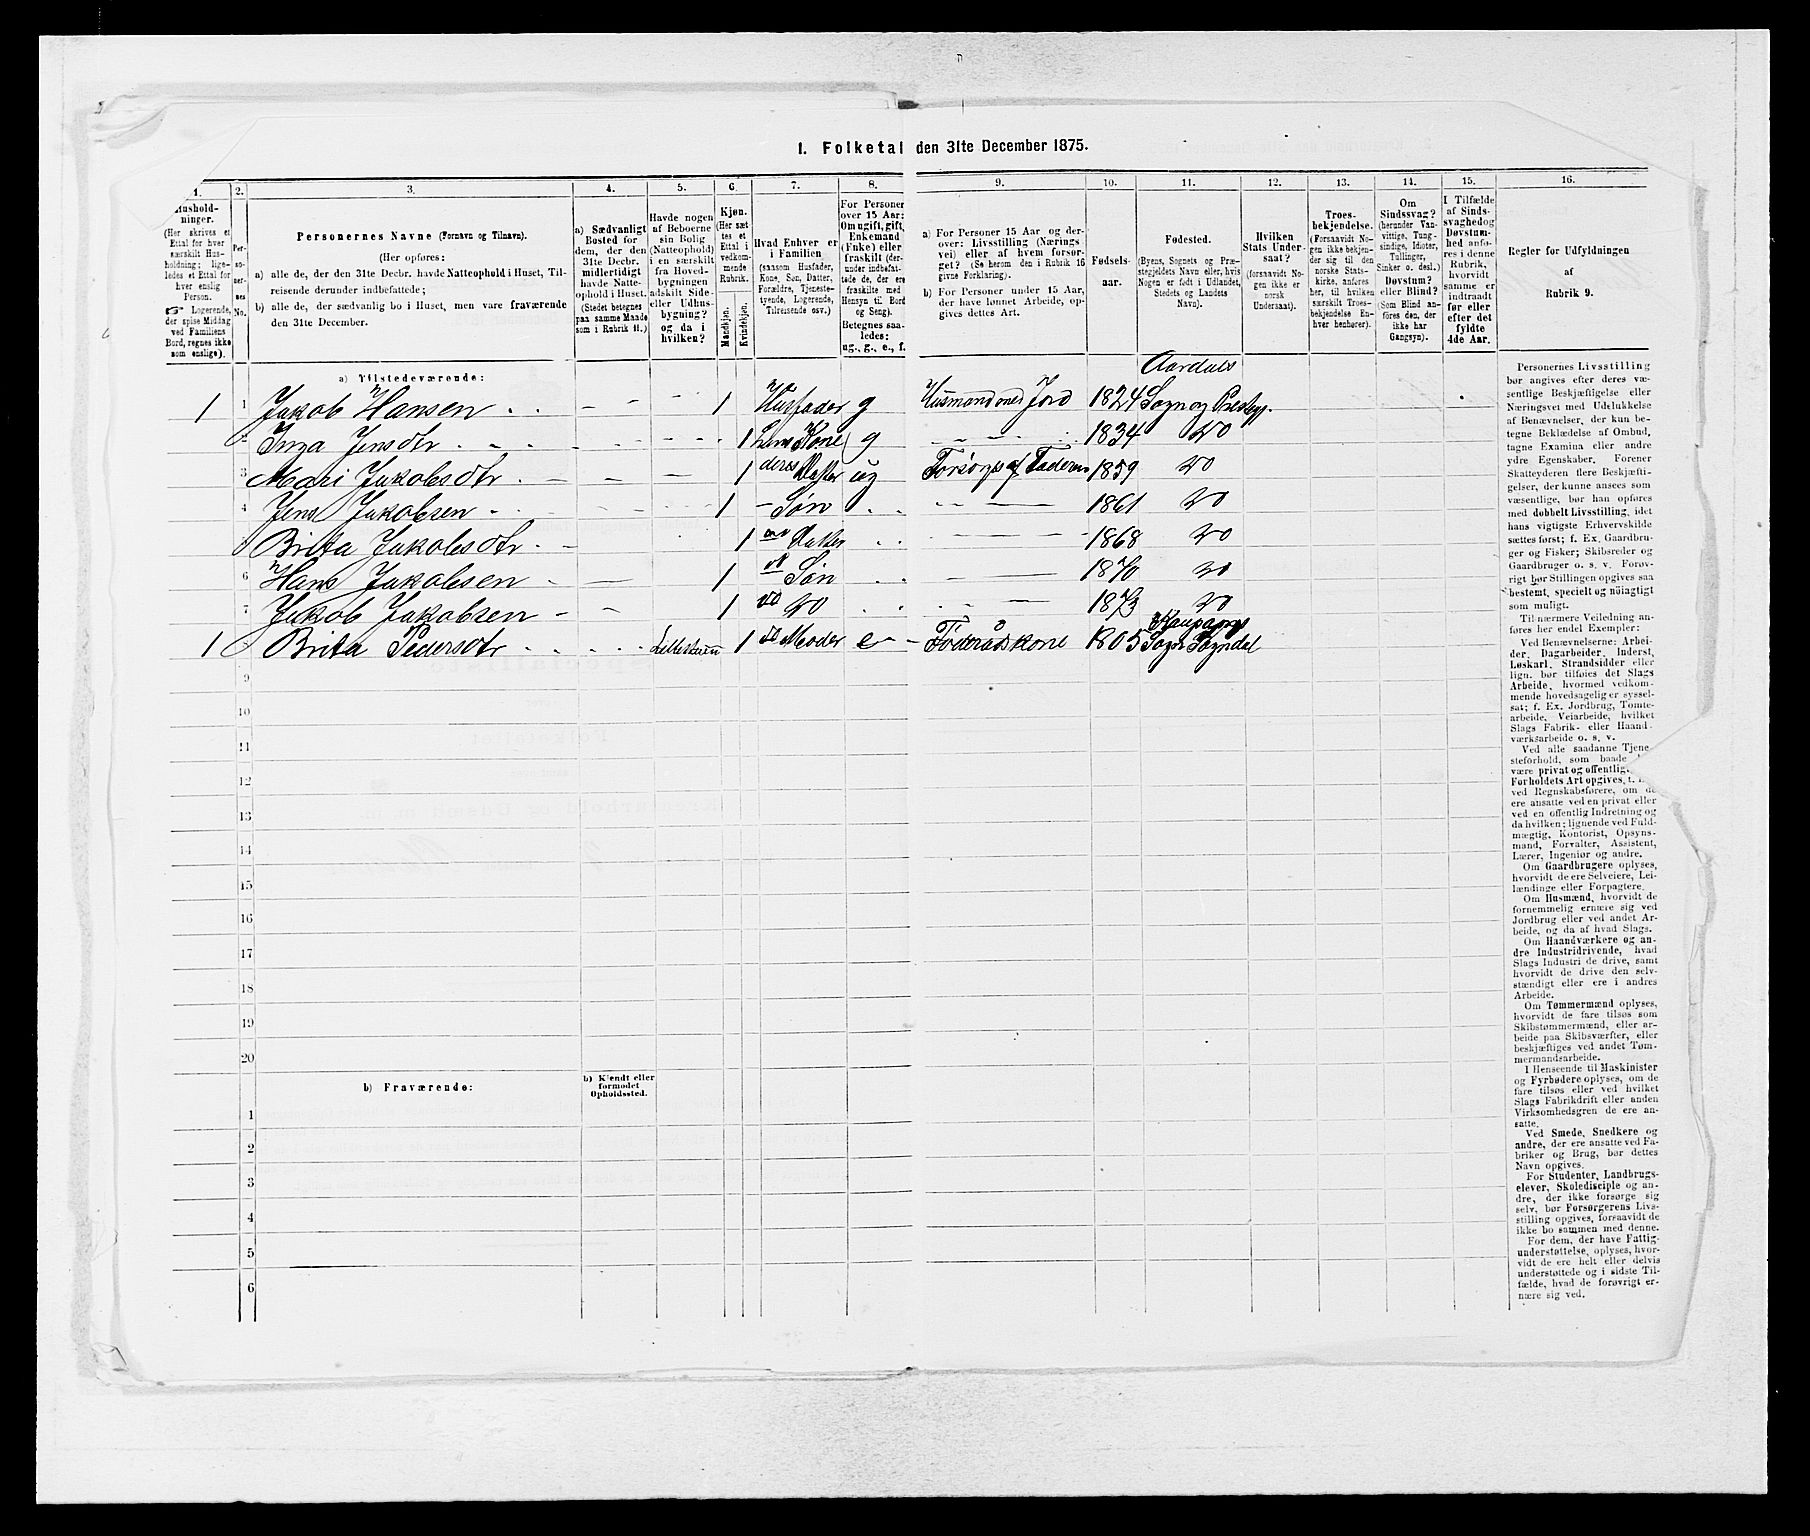 I. Folketal den 31te December 1875.
1. 2. 3. 4. 5. 6. 7. 8. 9. 10. 11. 12. 13. 14. 15. 16.
Hushold-
ninger.
(Her skrives et
Ettal for hver
særskilt Hus-
holdning; lige-
ledes et Ettal for
hver enslig
Person.
Logerende,
der spise Middag
ved Familiens
Bord, regnes ikke
som enslige).
Per-
so-
ner-
nes
No.
Personernes Navne (Fornavn og Tilnavn).
(Her opføres:
a) alle de, der den 31te Decbr. havde Natteophold i Huset, Til-
reisende derunder indbefattede;
b) alle de, der sædvanlig bo i Huset, men vare fraværende
den 31te December.
a) Sædvanligt
Bosted for
dem, der den
31te Decbr.
midlertidigt
havde Natte-
ophold i Huset.
(Stedet betegnes
paa samme Maade
som i Rubrik 11.)
Havde nogen
af Beboerne
sin Bolig
(Natteophold)
i en særskilt
fra Hoved-
bygningen
adskilt Side-
eller Udhus-
bygning?
og da i
hvilken?
Kjøn.
(Her sæt-
tes et
Ettal i
vedkom-
mende
Rubrik.
Mandkjøn.
Kvindekjøn.
Hvad Enhver er
i Familien
(saasom Husfader,
Kone, Søn, Datter,
Forældre, Tjeneste-
tyende, Logerende,
Tilreisende osv.)
For Personer
over 15 Aar:
Om ugift, gift,
Enkemand
(Enke) eller
fraskilt (der-
under indbefat-
tede de, der ere
fraskilte med
Hensyn til Bord
og Seng).
Betegnes saa-
ledes:
ug., g., e., f.
a) For Personer 15 Aar og der-
over: Livsstilling (Nærings-
vei) eller af hvem forsør-
get? (Se herom den i Rubrik 16
givne Forklaring).
b) For Personer under 15 Aar,
der have lønnet Arbeide, op-
gives dettes Art.
Fødsels-
aar.
Fødested.
(Byens, Sognets og Præ-
stegjeldets Navn eller, hvis
Nogen er født i Udlandet,
Stedets og Landets
Navn).
Hvilken
Stats Under-
saat?
(forsaavidt No-
gen ikke er
norsk
Undersaat).
Troes-
bekjendelse.
(Forsaavidt No-
gen ikke bekjen-
der sig til den
norske Stats-
kirke, anføres
her, til hvilken
særskilt Troes-
bekjendelse En-
hver henhører).
Om
Sindssvag?
(herunder Van-
vittige, Tung-
sindige, Idioter,
Tullinger,
Sinker o. desl.)
Døvstum?
eller Blind?
(Som Blind an-
føres den, der
ikke har
Gangsyn).
I Tilfælde
af Sinds-
svaghed og
Døvstum-
hed anfø-
res i denne
Rubrik,
hvorvidt
samme er
indtraadt
før eller
efter det
fyldte
4de Aar.
Regler for Udfyldningen
af
Rubrik 9.
a) Tilstedeværende:
Aardals
1 1 Jakob Hansen 1 Husfader g Husmand med Jord 1824 Sogn og Prestegj.
2 Inga Jensdtr 1 hans Kone g 1834 do
3 Mari Jakobsdtr 1 deres Datter ug Forsørges af Faderen 1859 do
4 Jens Jakobsen 1 Søn 1861 do
Brita Jakobsdtr 1 Datter 1868 do
6 Hans Jakobsen 1 do Søn 1870 do
7 Jakob Jakobsen 1 do do 1873 do
Kaupangs
1 Brita Pedersdtr 1 Moder e Føderådskone 1805 Sogn Sogndal
9
10
11
12
13
14
15
16
17
18
19
20
b) Fraværende:
b) Kjendt eller
formodet
Opholdssted.
1
2
3
4
5
6
Personernes Livsstilling
bør angives efter deres væ-
sentlige Beskjæftigelse eller
Næringsvei med Udelukkelse
af Benævnelser, der kun be-
tegne Beklædelse af Ombud,
tagne Examina eller andre
ydre Egenskaber. Forener
Skatteyderen flere Beskjæfti-
gelser, der kunne ansees som
væsentlige, bør han opføres
med dobbelt Livsstilling, idet
hans vigtigste Erhvervskilde
sættes først; f. Ex. Gaardbru-
ger og Fisker; Skibsreder og
Gaardbruger o. s. v. Forøv-
rigt bør Stillingen opgives saa
bestemt, specielt og nøiagtigt
som muligt.
Til nærmere Veiledning an-
føres her endel Exempler:
Ved Benævnelserne: Arbei-
der, Dagarbeider, Inderst,
Løskarl, Strandsidder eller
lign. bør tilføies det Slags
Arbeide, hvormed vedkom-
mende hovedsagelig er syssel-
sat; f. Ex. Jordbrug, Tomte-
arbeide, Veiarbeide, hvilket
Slags Fabrik- eller Haand-
værksarbeide o. s. v.
Ved alle saadanne Tjene-
steforhold, som baade
være privat og offentlig,
Forholdets Art opgives, t.
ved Regnskabsførere, om de
ere ansatte ved en privat eller
ved en offentlig Indretning og
da hvilken; lignende ved Fuld-
mægtig, Kontorist, Opsyns-
mand, Forvalter, Assistent,
Lærer, Ingeniør og andre.
Om Gaardbrugere oplyses,
hvorvidt de ere Selveiere, Lei-
lændinge eller Forpagtere.
Om Husmænd, hvorvidt de
fornemmelig ernære sig ved
Jordbrug eller ved andet Ar-
beide, og da af hvad Slags.
Om Haandværkere og an-
dre Industridrivende, hvad
Slags Industri de drive, samt
hvorvidt de drive den selv-
stændigt eller ere i andres
Arbeide.
Om Tømmermænd oplyses,
hvorvidt de fare tilsøs som
Skibstømmermænd, eller ar-
beide paa Skibsværfter, eller
beskjæftiges ved andet Tøm-
mermandsarbeide.
I Henseende til Maskinister
og Fyrbødere oplyses, om de
fare tilsøs eller ved hvilket
Slags Fabrikdrift eller anden
Virksomhedsgren de ere an-
satte.
Ved Smede, Snedkere og
andre, der ere ansatte ved Fa-
briker og Brug, bør dettes
Navn opgives.
For Studenter, Landbrugs-
elever, Skoledisciple og an-
dre, der ikke forsørge sig
selv, bør Forsørgerens Livs-
stilling opgives, forsaavidt de
ikke bo sammen med denne.
For dem, der have Fattig-
understøttelse, oplyses, hvor-
vidt de ere helt eller delvis
understøttede og i sidste Til-
fælde, hvad de forøvrigt er-
nære sig ved.